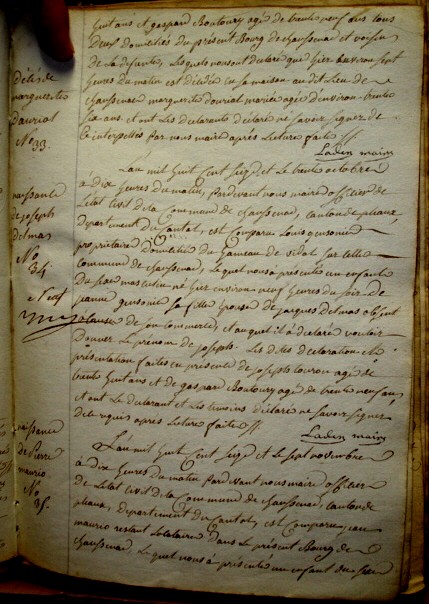 huit ans et gaspard Boutoury agé de trente neuf ans tous
deux domiciliés du présent Bourg de chaussenac et voisins
de la défunte, Lesquels nous ont declaré que hier environ sept
heures du matin est décédée en sa maison au dit Lieu de
chaussenac marguerite dauriat mariée agée d'environ trente
six ans et ont Les déclarants déclaré ne savoir signer de
ce interpellés par nous maire après Lecture faite
Laden maire
décès de
marguerite
dauriat
No 33.
L'an mil huit cent seize et Le trente octobre
à dix heures du matin, Pardevant nous maire officier de
L'état civil de la Commune de chaussenac, canton de pleaux,
département du Cantal, est comparu Louis
propriétaire Domicilié du hameau de vidal sur cette
commune de chaussenac, Lequel nous a présenté un enfant
du sexe masculin né hier environ neuf heures du soir de
jeanne sa fille épouse de jacques delmas absent
de son commerce, et auquel il a déclaré vouloir
Donner Le prénom de joseph. Les dites déclaration et
présentation faites en présence de joseph agé de
trente huit ans et de gaspard Boutoury agé de trente neuf ans,
et ont Le déclarant et Les temoins déclaré ne savoir signer
de ce requis après Lecture faite
Laden maire
naissance
de joseph
delmas
No
34
L'an mil huit Cent seize et Le sept novembre
à dix heures du matin Pardevant nous maire officier
de L'état civil de la Commune de chaussenac, canton de
pleaux, département du Cantal, est Comparu jean
maurio restant Locataire dans Le présent Bourg de
chaussenac, Lequel nous a présenté un enfant du sexe
naissance
de Pierre
maurio
No
35.